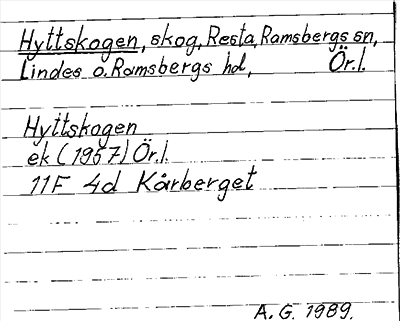 Hyttskogen, skog, Resta, Ramsbergs sn,
Lindes o. Ramsbergs hd, Ör.l.
Hyttskogen
ek (1957) Ör.l.
11F 4d Kårberget
A.G. 1989.